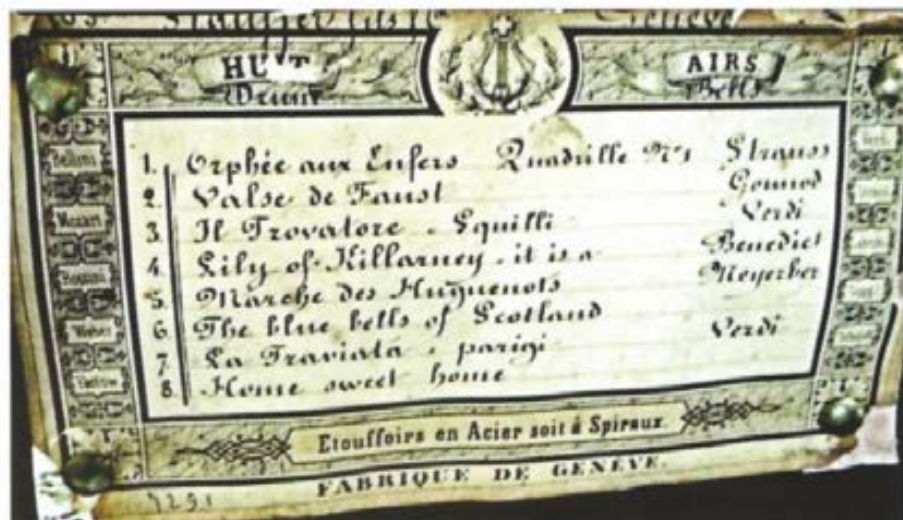 HUIT AIRS
Drum Bells
Bellini
Mozart
Rossini
Weber
1. Orphée aux Enfers Quadrille No 1 Strauss
2. Valse de Faust Gounod
3. Il Trovatore . Squilli Verdi
4. Lily of Killarney . it is a Benedict
5. Marche des Huguenots Meyerber
6. The blue bells of Scotland
7. La Traviata . parigi Verdi
8. Home sweet home
Etouffoirs en Acier soit à Spiraux
FABRIQUE DE GENÈVE.